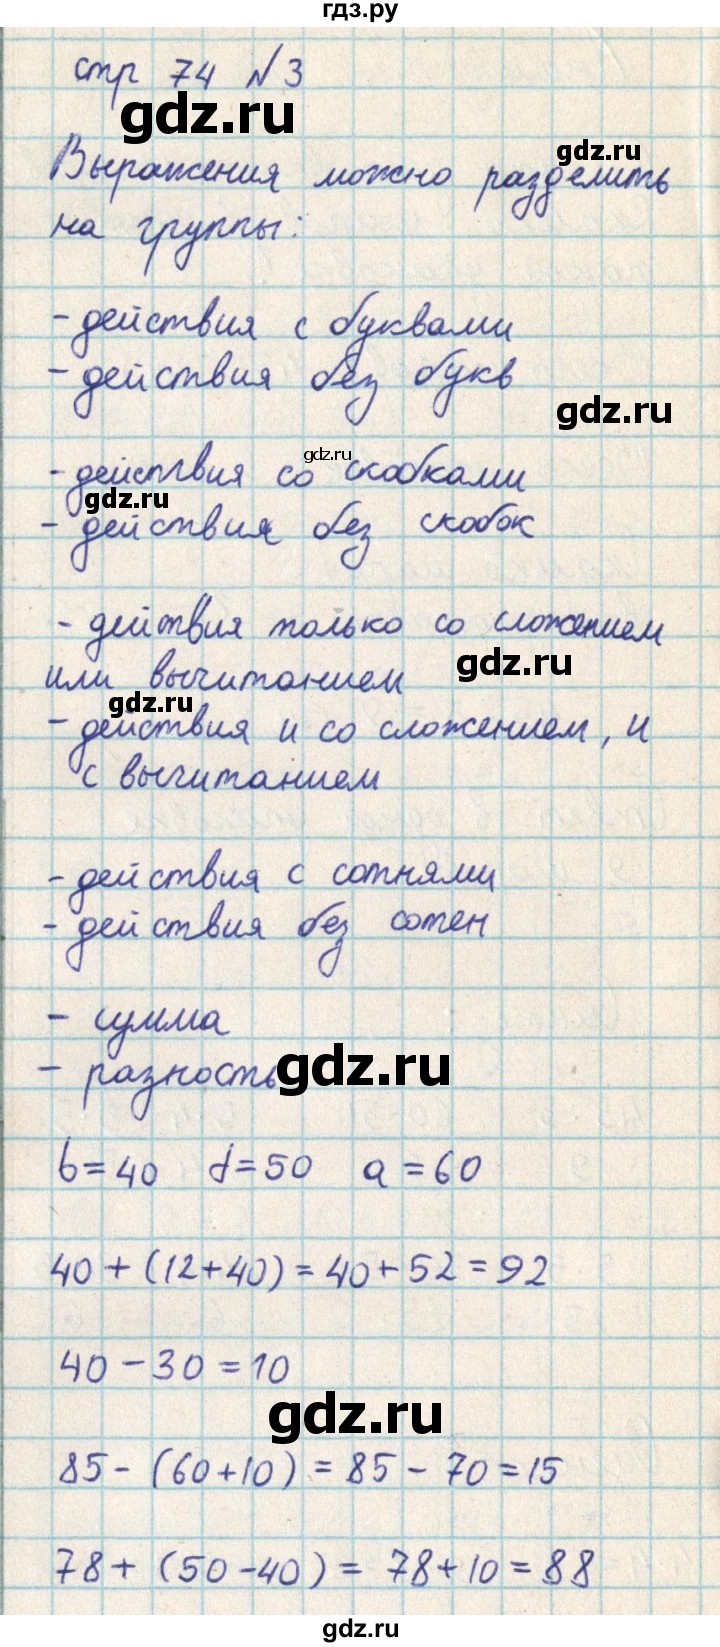 гдз.ру
стр 74 №3
gdz.ru
gdz.ru
Выражения можно разделить
на группы:
- действия с буквами
- действия без букв
gdz.ru
gdz.ru
- действия со скобками
gdz.ru
- действия без скобок
- действия только со сложением
gdz.ru
или вычитанием
gdz.ru
- действия и со сложением, и
с вычитанием
- действия с сотнями
- действия без сотен
- сумма
- разность
gdz.ru
b=40 d=50 a=60
40+(12+40)=40+52=92
40-30=10
gdz.ru
85-(60+10)=85-70=15
78+(50-40)=78+10=88
gdz.ru